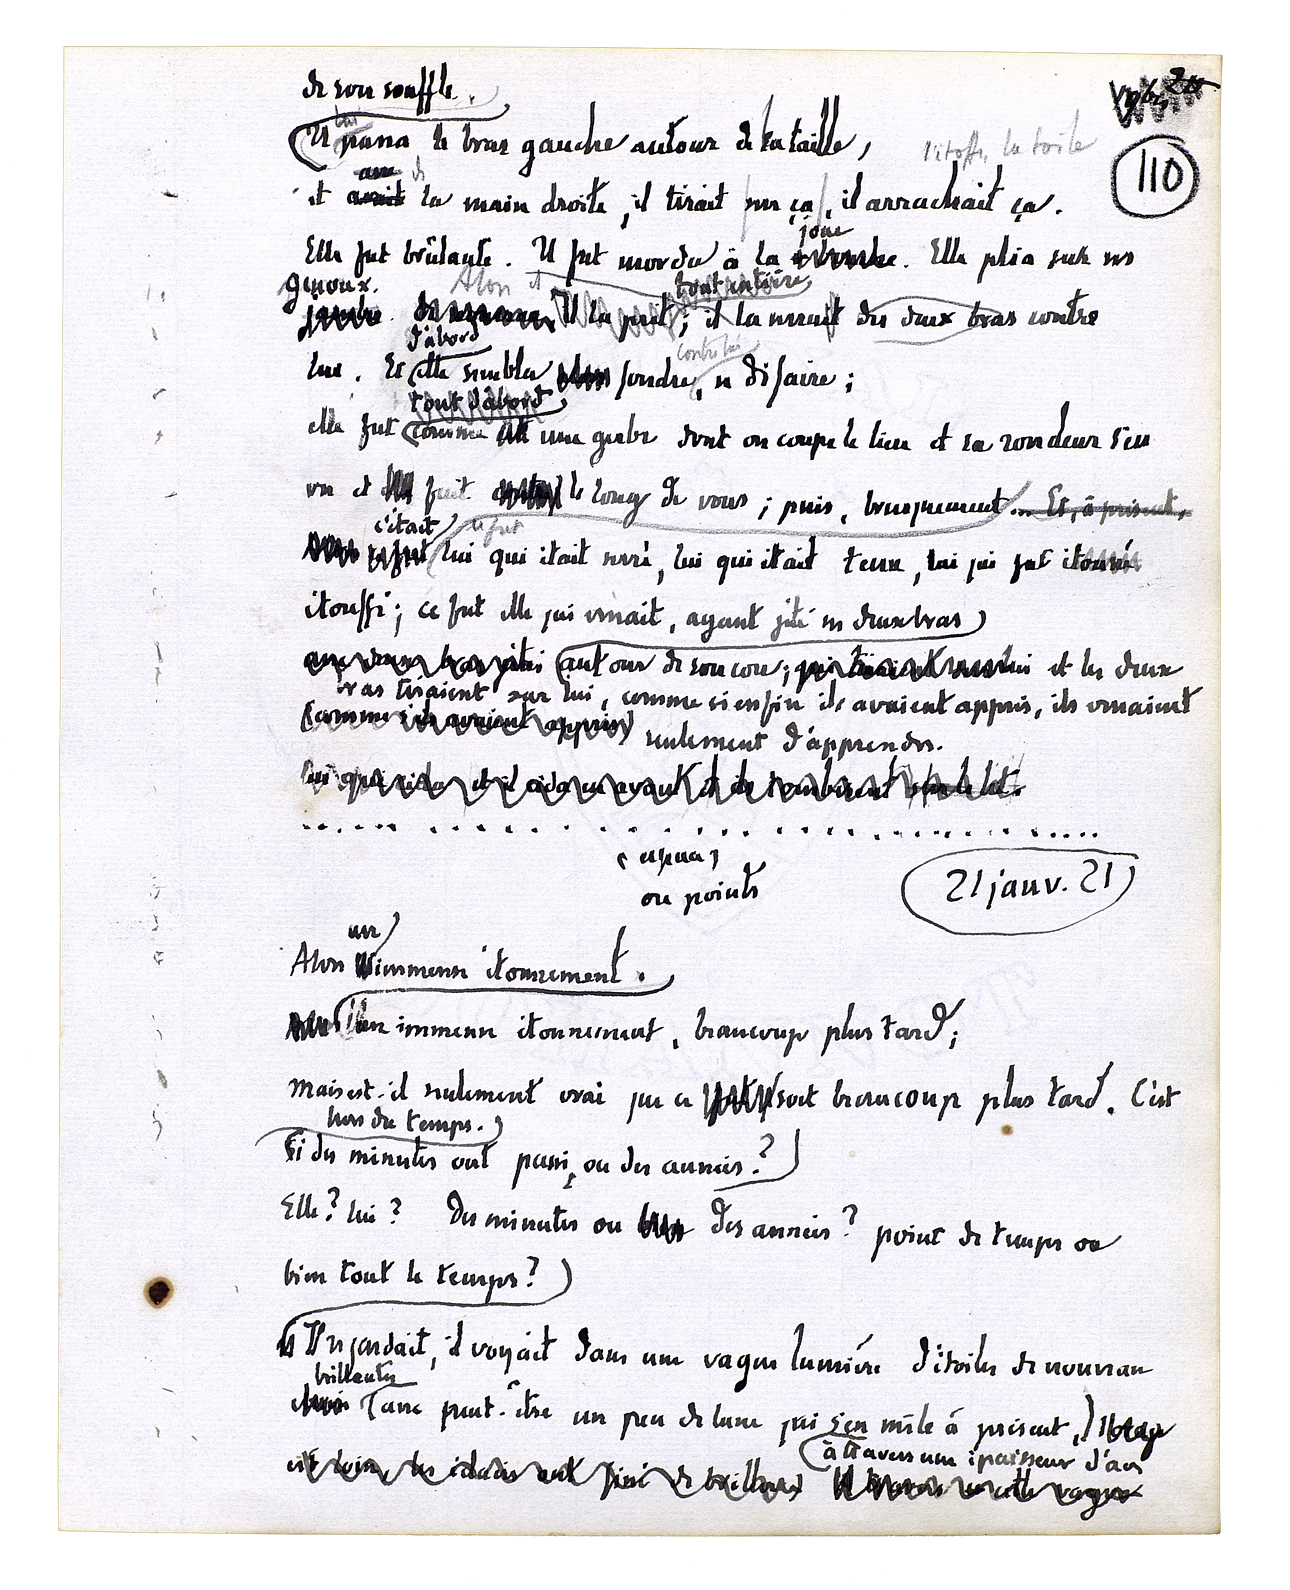 de son souffle.
110
lui
Il passa le bras gauche autour de la taille,
l'étoffe, la toile
avec de
et avait la main droite, il tirait sur ça, il arrachait ça.
joue
Elle fut brûlante. Il fut mordu à la . Elle plia sur ses
genoux. Alors il tout entière,
Il la prit ; il la serrait des deux bras contre
d'abord contre lui
lui. Et elle sembla fondre, se défaire ;
tout d'abord
elle fut comme une gerbe dont on coupe le lien et sa rondeur s'en
va et fuit le long de vous ; puis, brusquement ... Et, à présent,
c'était ce fut
ce fut lui qui était serré, lui qui était tenu, lui qui fut étouffé
étouffé ; ce fut elle qui venait, ayant jeté ses deux bras
avec deux bras jetés autour de son cou ; et les deux
bras tiraient sur lui, comme si enfin ils avaient appris, ils venaient
(comme s'ils avaient appris) seulement d'apprendre.
lui qui céda et il céda en avant et ils tombèrent sur le lit.
. . . . . . . . . . . . . . . . . . . . . . . . . . . . . .
(espace)
ou points
21 janv. 21
un
Alors immense étonnement.
Un immense étonnement, beaucoup plus tard ;
mais est-il seulement vrai que ce soit beaucoup plus tard. C'est
hors du temps.
Si des minutes ont passé, ou des années ?
Elle ? lui ? Des minutes ou des années ? point de temps ou
bien tout le temps ?
Il regardait, il voyait dans une vague lumière d'étoiles de nouveau
brillantes
(avec peut-être un peu de lune qui s'en mêle à présent,)
à travers une épaisseur d'air
est loin, les éclairs ont fini de briller) cette vague